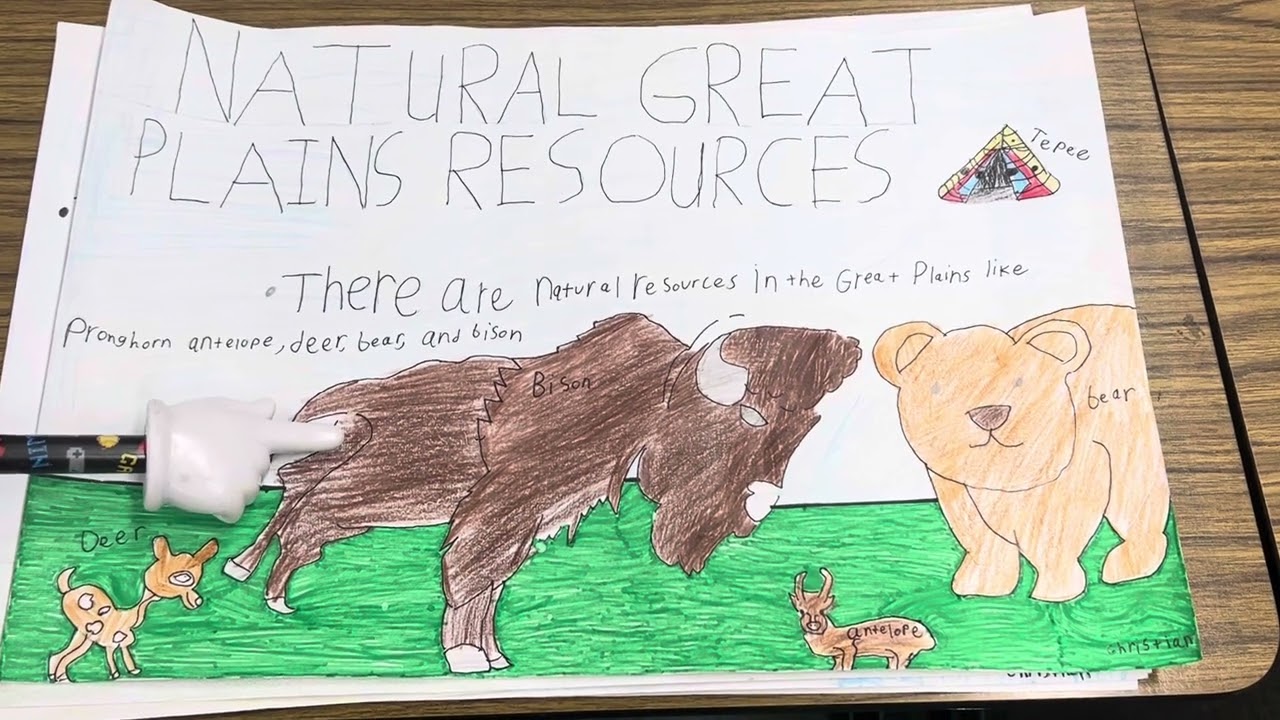 NATURAL GREAT
PLAINS RESOURCES
Tepee
There are natural resources in the Great Plains like
Pronghorn antelope, deer, bear, and bison
Bison
bear
Deer
antelope
Christian